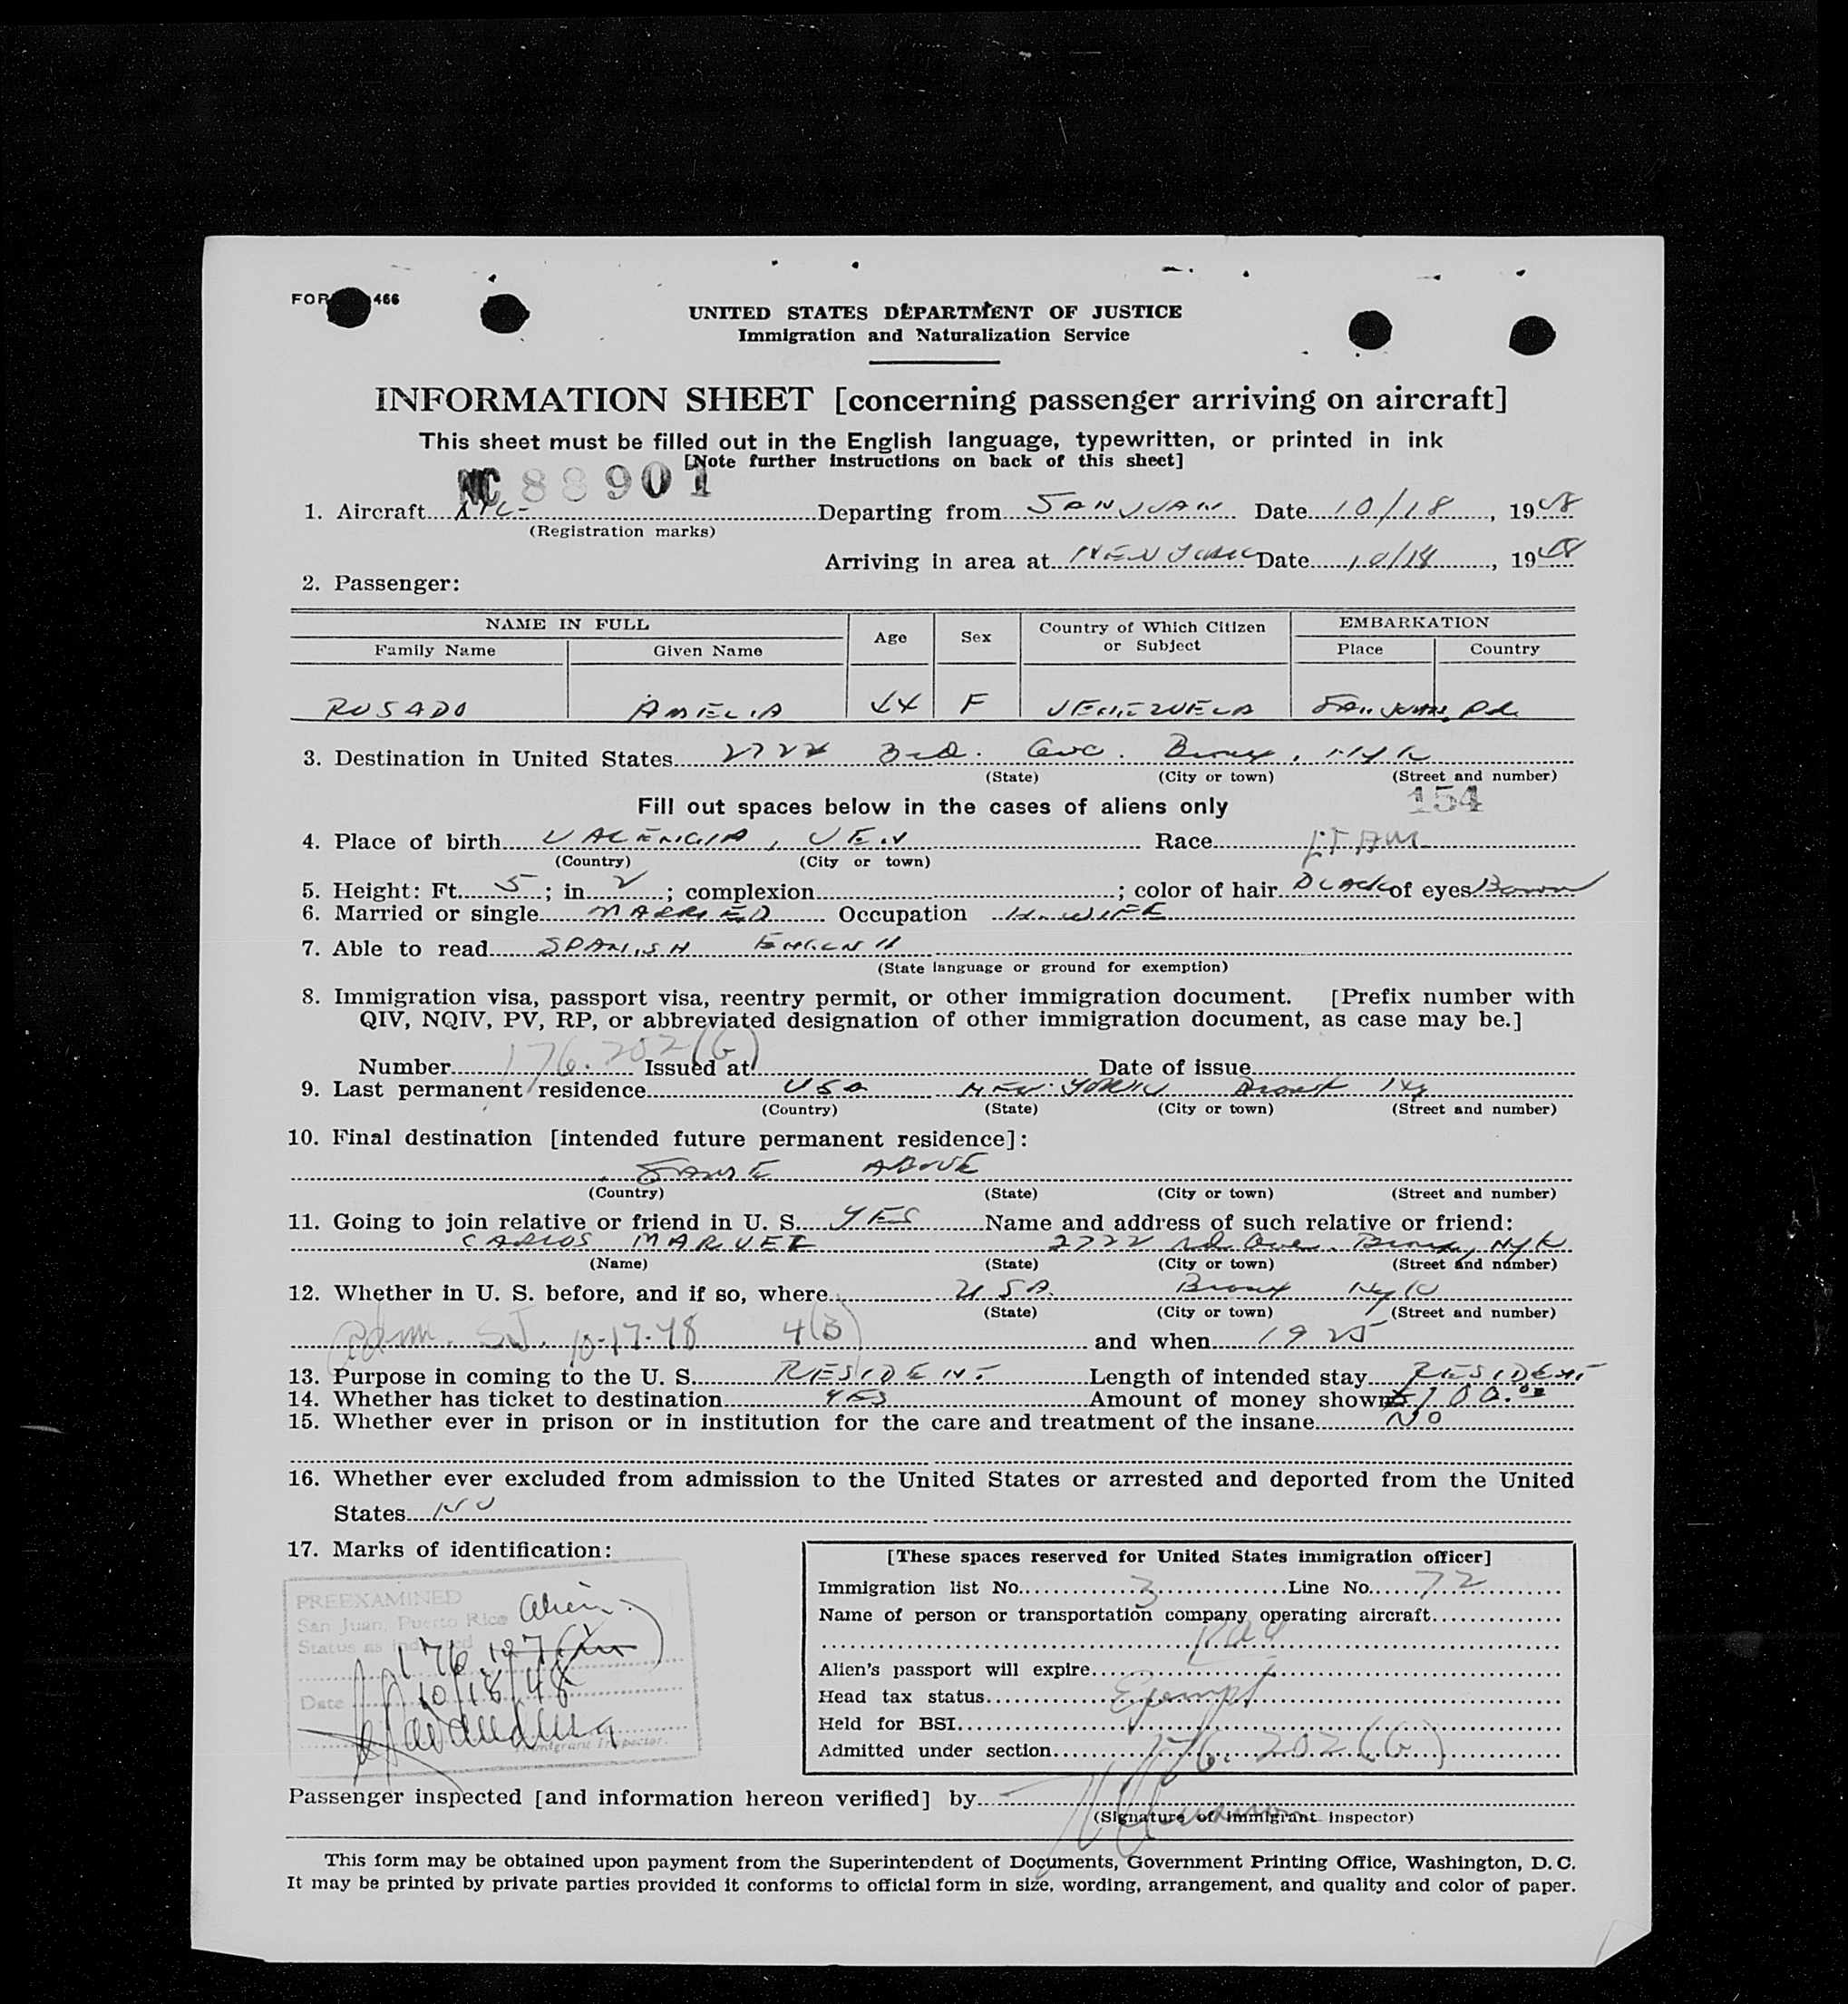 FOR 466
UNITED STATES DEPARTMENT OF JUSTICE
Immigration and Naturalization Service
INFORMATION SHEET [concerning passenger arriving on aircraft]
This sheet must be filled out in the English language, typewritten, or printed in ink
[Note further instructions on back of this sheet]
NC 88901
1. Aircraft Departing from SAN JUAN Date 10/18, 1948
(Registration marks)
Arriving in area at NEW YORK Date 10/18, 1948
2. Passenger:
NAME IN FULL Age Sex Country of Which Citizen or Subject EMBARKATION
Family Name Given Name Place Country
ROSADO AMELIA F VENEZUELA SAN JUAN, P.R.
3. Destination in United States 2722 3rd. Ave. Bronx, N.Y.K
(State) (City or town) (Street and number)
Fill out spaces below in the cases of aliens only
154
4. Place of birth VALENCIA, VEN Race LT AM
(Country) (City or town)
5. Height: Ft. 5; in. 2; complexion; color of hair BLACK of eyes Brown
6. Married or single MARRIED Occupation H. WIFE
7. Able to read SPANISH ENGLISH
(State language or ground for exemption)
8. Immigration visa, passport visa, reentry permit, or other immigration document. [Prefix number with
QIV, NQIV, PV, RP, or abbreviated designation of other immigration document, as case may be.]
Number 176.202(G) Issued at Date of issue
9. Last permanent residence USA NEW YORK Bronx NY
(Country) (State) (City or town) (Street and number)
10. Final destination [intended future permanent residence]:
SAME ABOVE
(Country) (State) (City or town) (Street and number)
11. Going to join relative or friend in U. S. YES Name and address of such relative or friend:
CARLOS 2722 Ave. Bronx, NYK
(Name) (State) (City or town) (Street and number)
12. Whether in U. S. before, and if so, where USA. Bronx NYK
(State) (City or town) (Street and number)
Adm. S.J. 10-17-48 4(B) and when 1925
13. Purpose in coming to the U. S. RESIDENT Length of intended stay RESIDENT
14. Whether has ticket to destination YES Amount of money shown $100.00
15. Whether ever in prison or in institution for the care and treatment of the insane NO
16. Whether ever excluded from admission to the United States or arrested and deported from the United
States NO
17. Marks of identification:
PREEXAMINED
San Juan, Puerto Rico Alien
Status as indicated
Date 10/18/48
Immigrant Inspector.
[These spaces reserved for United States immigration officer]
Immigration list No. 3 Line No. 72
Name of person or transportation company operating aircraft
PAA
Alien's passport will expire
Head tax status Exempt
Held for BSI
Admitted under section 176.202(G)
Passenger inspected [and information hereon verified] by
(Signature of immigrant inspector)
This form may be obtained upon payment from the Superintendent of Documents, Government Printing Office, Washington, D. C.
It may be printed by private parties provided it conforms to official form in size, wording, arrangement, and quality and color of paper.